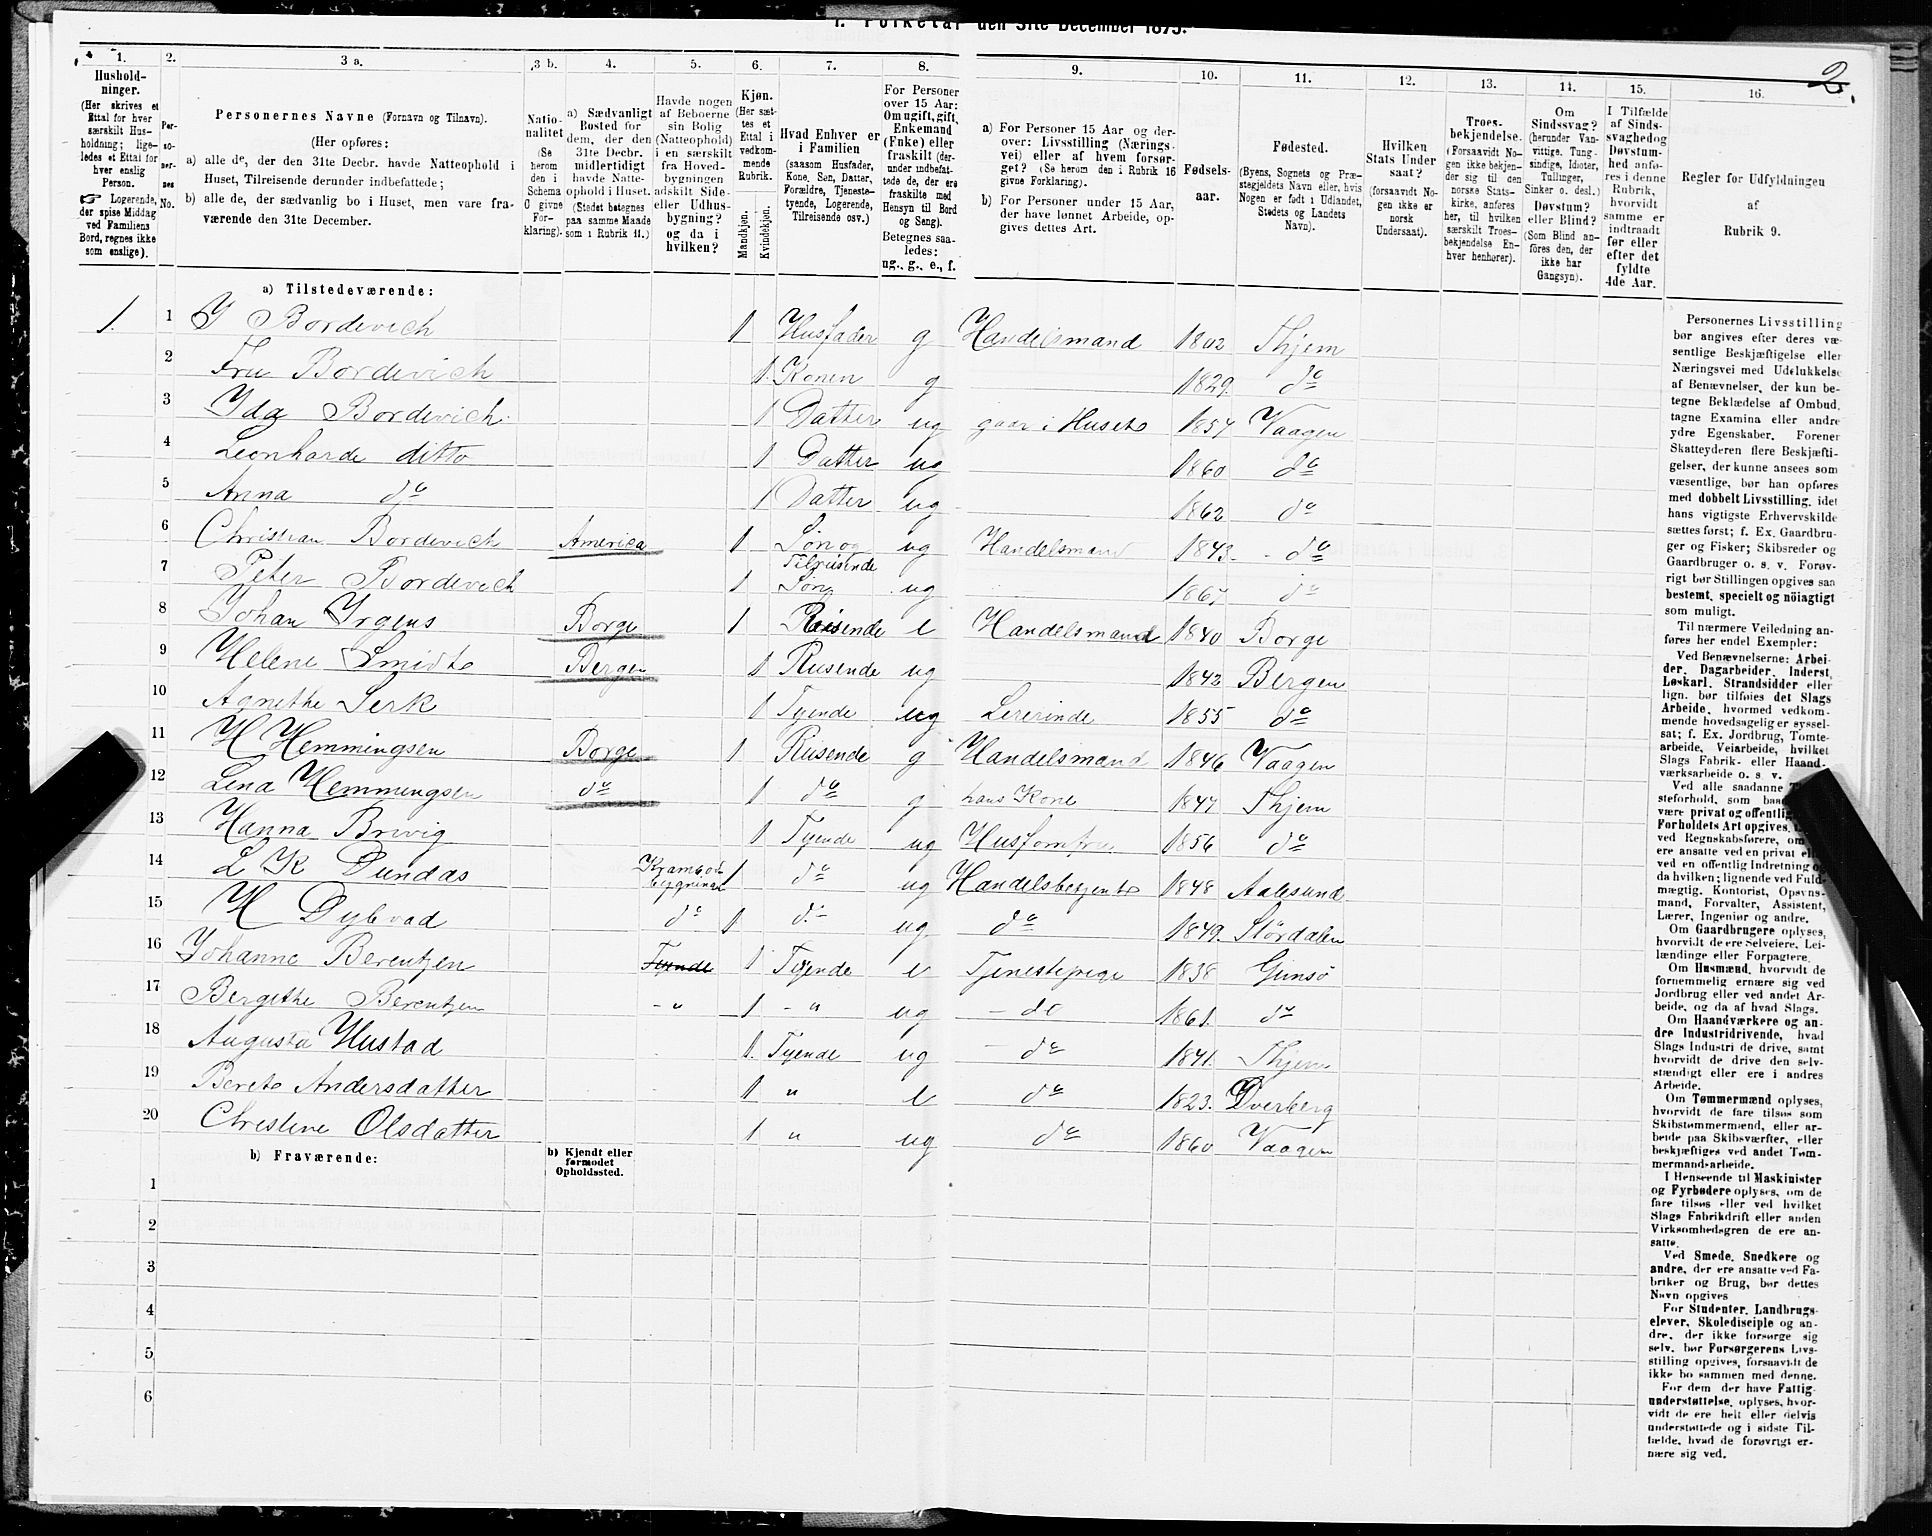 1. Folketal den 31te December 1875.
2.
1.
2.
3 a.
3 b.
4.
5.
6.
7.
8.
9.
10.
11.
12.
13.
14.
15.
16.
Hushold-
ninger.
(Her skrives et
Ettal for hver
særskilt Hus-
holdning; lige-
ledes et Ettal for
hver enslig
Person.
☞ Logerende,
der spise Middag
ved Familiens
Bord, regnes ikke
som enslige).
Per-
so-
ner-
nes
No.
Personernes Navne (Fornavn og Tilnavn).
(Her opføres:
a) alle de, der den 31te Decbr. havde Natteophold i
Huset, Tilreisende derunder indbefattede;
b) alle de, der sædvanlig bo i Huset, men vare fra-
værende den 31te December.
Natio-
nalitet
(Se
herom
den i
Schema
C givne
For-
klaring).
a) Sædvanligt
Bosted for
dem, der den
31te Decbr.
midlertidigt
havde Natte-
ophold i Huset.
(Stedet betegnes
paa samme Maade
som i Rubrik 11.)
Havde nogen
af Beboerne
sin Bolig
(Natteophold)
i en særskilt
fra Hoved-
bygningen
adskilt Side-
eller Udhus-
bygning?
og da i
hvilken?
Kjøn.
(Her sæt-
tes et
Ettal i
vedkom-
mende
Rubrik.
Mandkjøn.
Kvindekjøn.
Hvad Enhver er
i Familien
(saasom Husfader,
Kone, Søn, Datter,
Forældre, Tjeneste-
tyende, Logerende,
Tilreisende osv.)
For Personer
over 15 Aar:
Om ugift, gift,
Enkemand
(Enke) eller
fraskilt (der-
under indbefat-
tede de, der ere
fraskilte med
Hensyn til Bord
og Seng).
Betegnes saa-
ledes:
ug., g., e., f.
a) For Personer 15 Aar og der-
over: Livsstilling (Nærings-
vei) eller af hvem forsør-
get? (Se herom den i Rubrik 16
givne Forklaring).
b) For Personer under 15 Aar,
der have lønnet Arbeide, op-
gives dettes Art.
Fødsels-
aar.
Fødested.
(Byens, Sognets og Præ-
stegjeldets Navn eller, hvis
Nogen er født i Udlandet,
Stedets og Landets
Navn).
Hvilken
Stats Under-
saat?
(forsaavidt No-
gen ikke er
norsk
Undersaat).
Troes-
bekjendelse.
(Forsaavidt No-
gen ikke bekjen-
der sig til den
norske Stats-
kirke, anføres
her, til hvilken
særskilt Troes-
bekjendelse En-
hver henhører).
Om
Sindssvag?
(herunder Van-
vittige, Tung-
sindige, Idioter,
Tullinger,
Sinker o. desl.)
Døvstum?
eller Blind?
(Som Blind an-
føres den, der
ikke har
Gangsyn).
I Tilfælde
af Sinds-
svaghed og
Døvstum-
hed anfø-
res i denne
Rubrik,
hvorvidt
samme er
indtraadt
før eller
efter det
fyldte
4de Aar.
Regler for Udfyldningen
af
Rubrik 9.
a) Tilstedeværende:
1. 1 I Bordevich 1 Husfader g Handelsmand 1802 Thjem
2 Fru Bordevich 1. Konen g 1829. do
3 Ida Bordevich 1 Datter ug gaar i Husets 1857 Vaagen
4 Leonharde ditto 1 Datter ug 1860 do
5 Anna do 1 Datter ug 1862 do
6 Christian Bordevich America 1 Søn og Tilreisende ug Handelsmand 1843. - do
7 Peter Bordevich 1 Søn ug 1867 do
8 Johan Irgens Borge 1 Reisende e Handelsmand 1840 Borge
9 Helene Smidts Bergen 1 Reisende ug 1842 Bergen
10 Agnethe Lerk 1 Tyende ug Lererinde 1855 do
11 H Hemmingsen Borge 1 Reisende g Handelsmand 1846 Vaagen
12 Lena Hemmingsen do 1 do g hans Kone 1847 Thjem
13 Hanna Brivig 1 Tyende ug Husjomfru 1856 do
14 L K Dundas Krambod bygningen 1 do ug Handelsbetjente 1848 Aalesund
15 H Dybvad do 1 do ug do 1849. Stördalen
16 Johanne Berentzen Tyende 1 Tyende e Tjenestepige 1838 Gimsö
17 Bergethe Berentzen - " 1 - " ug - do 1861. do
18 Augusta Hustad 1. Tyende ug - do 1841. Thjem
19 Berets Andersdatter 1 " e do 1823. Dverberg
20 Christine Olsdatter 1 " ug do 1860 Vaagen
b) Fraværende:
b) Kjendt eller
formodet
Opholdssted.
1
2
3
4
5
6
Personernes Livsstilling
bør angives efter deres væ-
sentlige Beskjæftigelse eller
Næringsvei med Udelukkelse
af Benævnelser, der kun be-
tegne Beklædelse af Ombud,
tagne Examina eller andre
ydre Egenskaber. Forener
Skatteyderen flere Beskjæfti-
gelser, der kunne ansees som
væsentlige, bør han opføres
med dobbelt Livsstilling, idet
hans vigtigste Erhvervskilde
sættes først; f. Ex. Gaardbru-
ger og Fisker; Skibsreder og
Gaardbruger o. s. v. Forøv-
rigt bør Stillingen opgives saa
bestemt, specielt og nöiagtigt
som muligt.
Til nærmere Veiledning an-
føres her endel Exempler:
Ved Benævnelserne: Arbei-
der, Dagarbeider, Inderst,
Løskarl, Strandsidder eller
lign. bør tilføies det Slags
Arbeide, hvormed vedkom-
mende hovedsagelig er syssel-
sat; f. Ex. Jordbrug, Tomte-
arbeide, Veiarbeide, hvilket
Slags Fabrik- eller Haand-
værksarbeide o. s. v.
Ved alle saadanne
steforhold, som
være privat og offentlig
Forholdets Art opgives,
ved Regnskabsførere, om
ere ansatte ved en privat
ved en offentlig Indretning og
da hvilken; lignende ved Fuld-
mægtig, Kontorist, Opsyns-
mand, Forvalter, Assistent,
Lærer, Ingeniør og andre.
Om Gaardbrugere oplyses,
hvorvidt de ere Selveiere, Lei-
lændinge eller Forpagtere.
Om Husmænd, hvorvidt de
fornemmelig ernære sig ved
Jordbrug eller ved andet Ar-
beide, og da af hvad Slags.
Om Haandværkere og an-
dre Industridrivende, hvad
Slags Industri de drive, samt
hvorvidt de drive den selv-
stændigt eller ere i andres
Arbeide.
Om Tømmermænd oplyses,
hvorvidt de fare tilsøs som
Skibstømmermænd, eller ar-
beide paa Skibsværfter, eller
beskjæftiges ved andet Tøm-
mermandsarbeide.
I Henseende til Maskinister
og Fyrbødere oplyses, om de
fare tilsøs eller ved hvilket
Slags Fabrikdrift eller anden
Virksomhedsgren de ere an-
satte.
Ved Smede, Snedkere og
andre, der ere ansatte ved Fa-
briker og Brug, bør dettes
Navn opgives
For Studenter, Landbrugs-
elever, Skoledisciple og an-
dre, der ikke forsørge sig
selv, bør Forsørgerens Livs-
stilling opgives, forsaavidt de
ikke bo sammen med denne.
For dem der have Fattig-
understøttelse, oplyses, hvor-
vidt de ere helt eller delvis
understøttede og i sidste Til-
fælde, hvad de forøvrigt er-
nære sig ved.